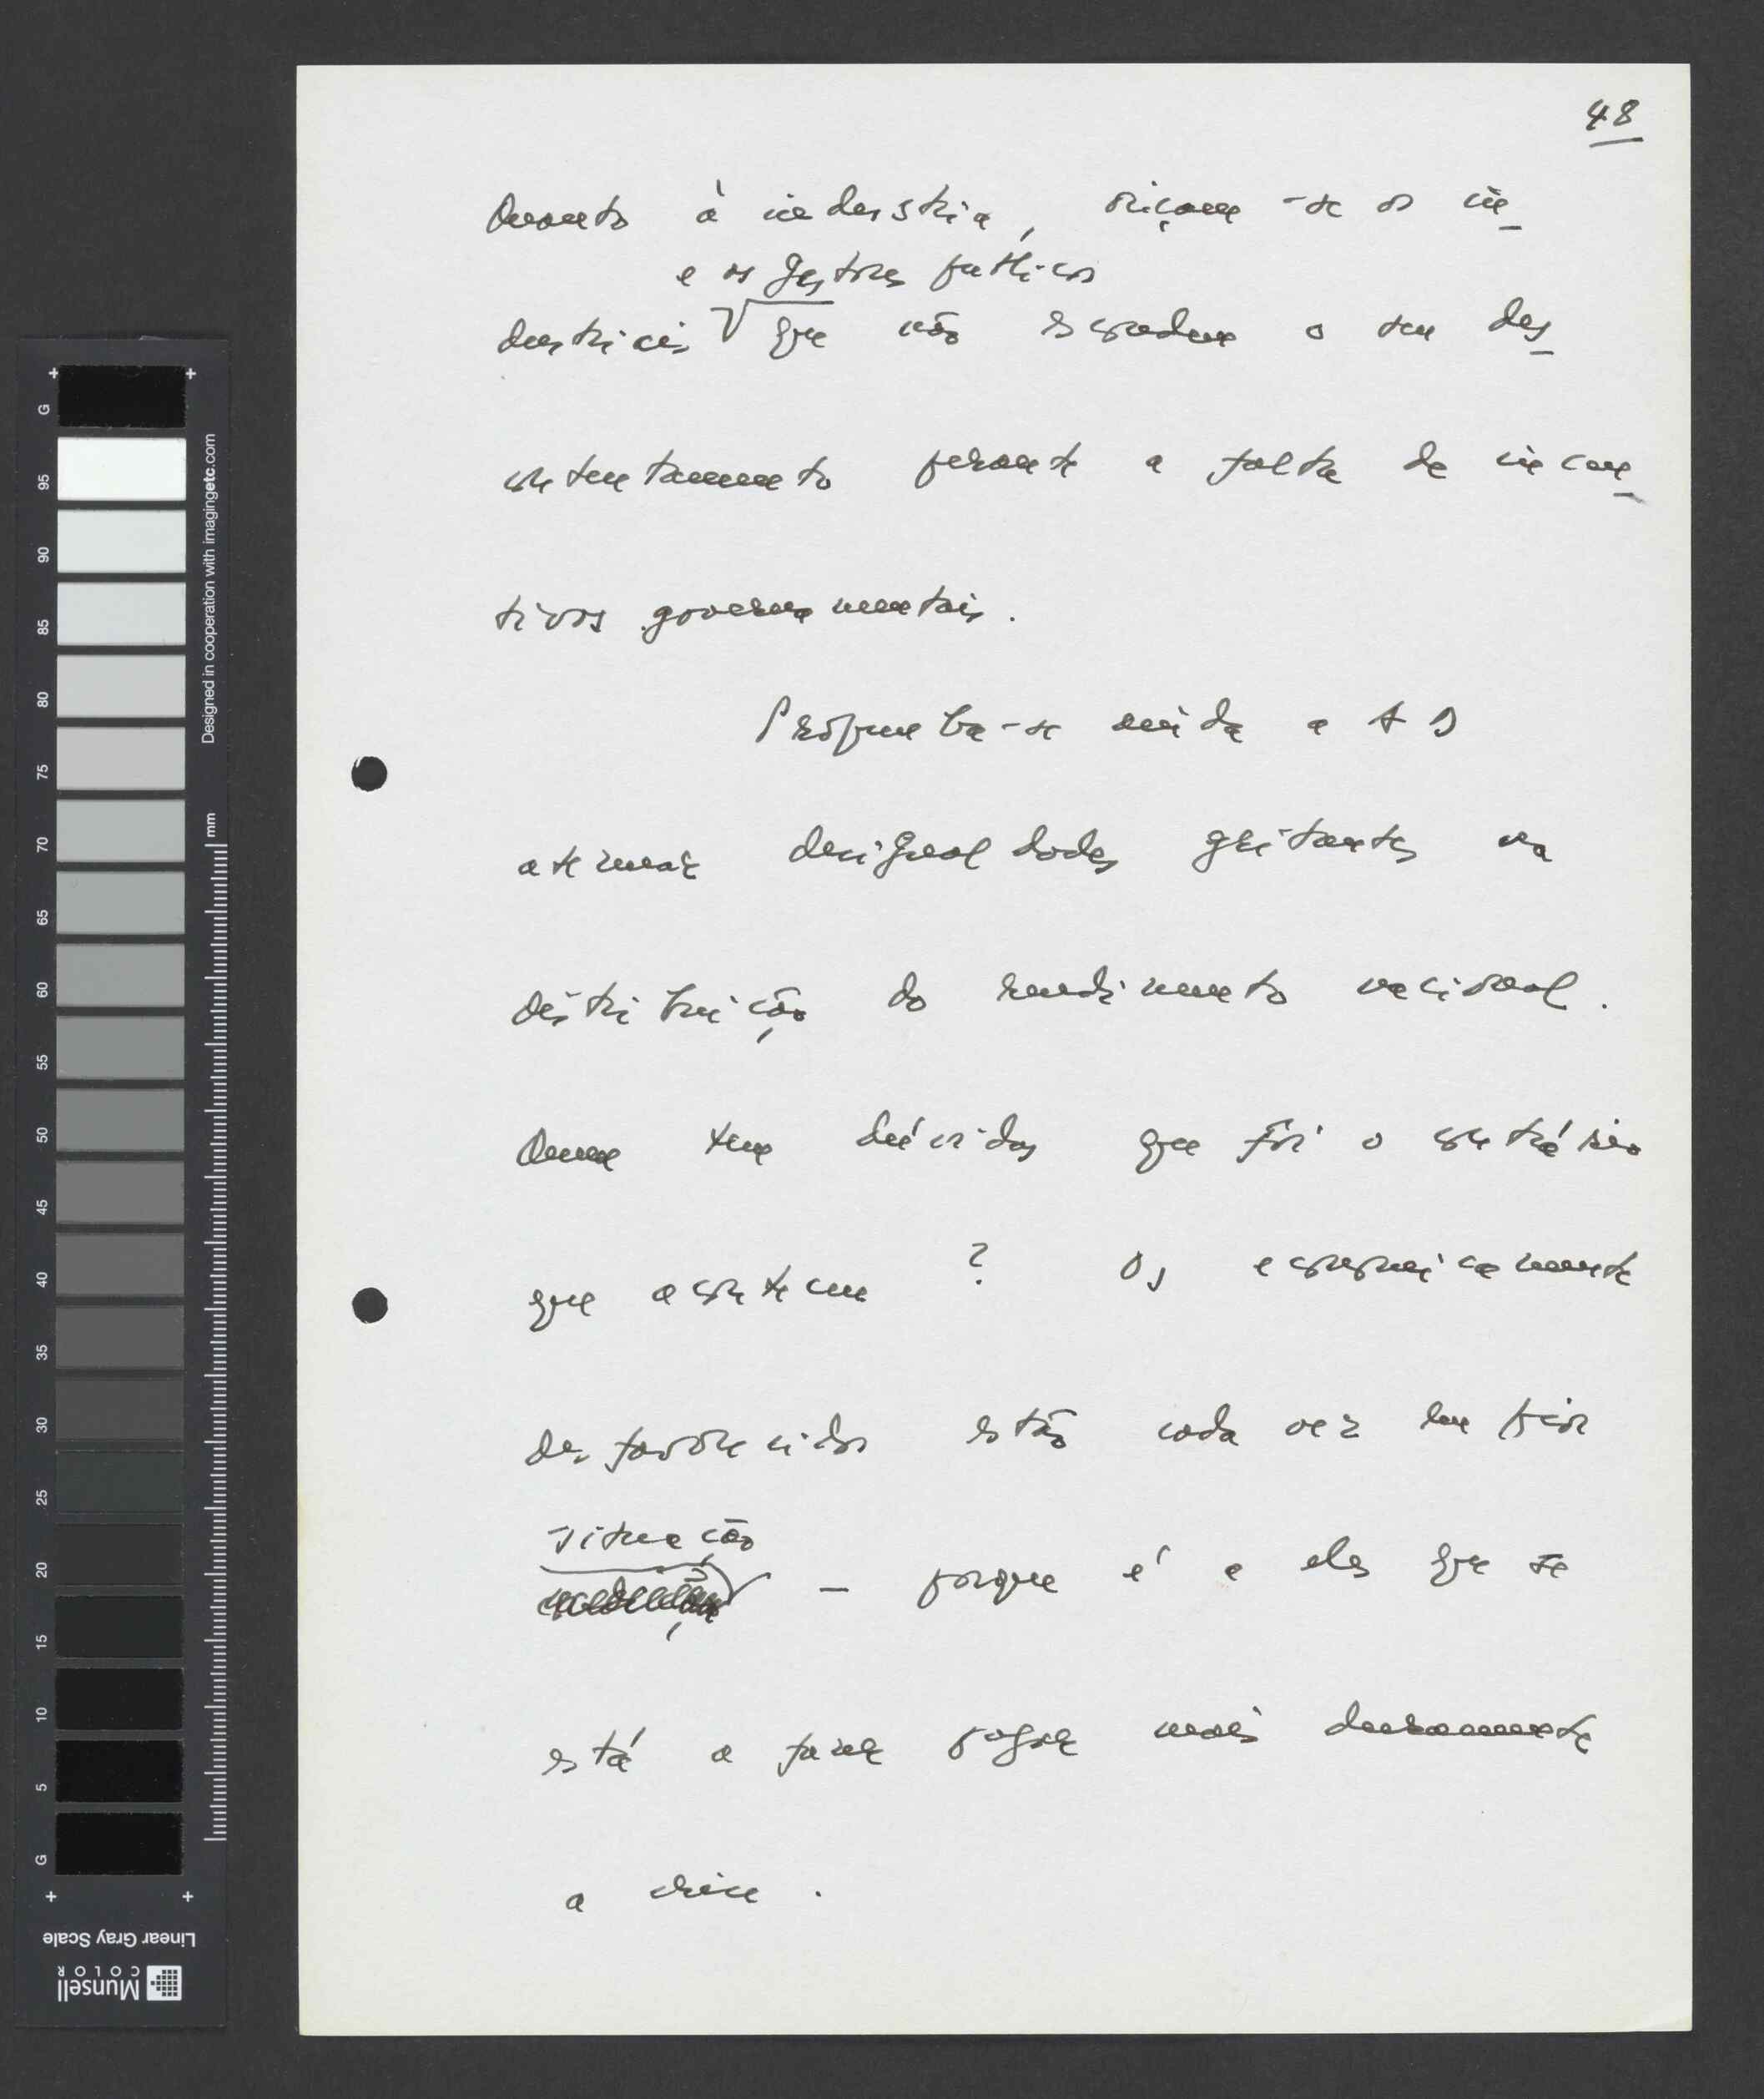 48
Quanto à indústria, oiçam-se os in-
e os gestores públicos
dustriais que não escondem o seu des-
contentamento perante a falta de incen-
tivos governamentais.
Propunha-se ainda a AD
atenuar desigualdades gritantes na
distribuição do rendimento nacional.
Quem tem dúvidas que foi o contrário
que aconteceu? Os economicamente
desfavorecidos estão cada vez em pior
situação
— porque é a eles que se
está a fazer pagar mais duramente
a crise.
+ +
G 95 90 85 80 75 70 65 60 55 50 45 40 35 30 25 20 15 10 5 G
Designed in cooperation with imagingetc.com
mm
+ +
Linear Gray Scale
Munsell
COLOR